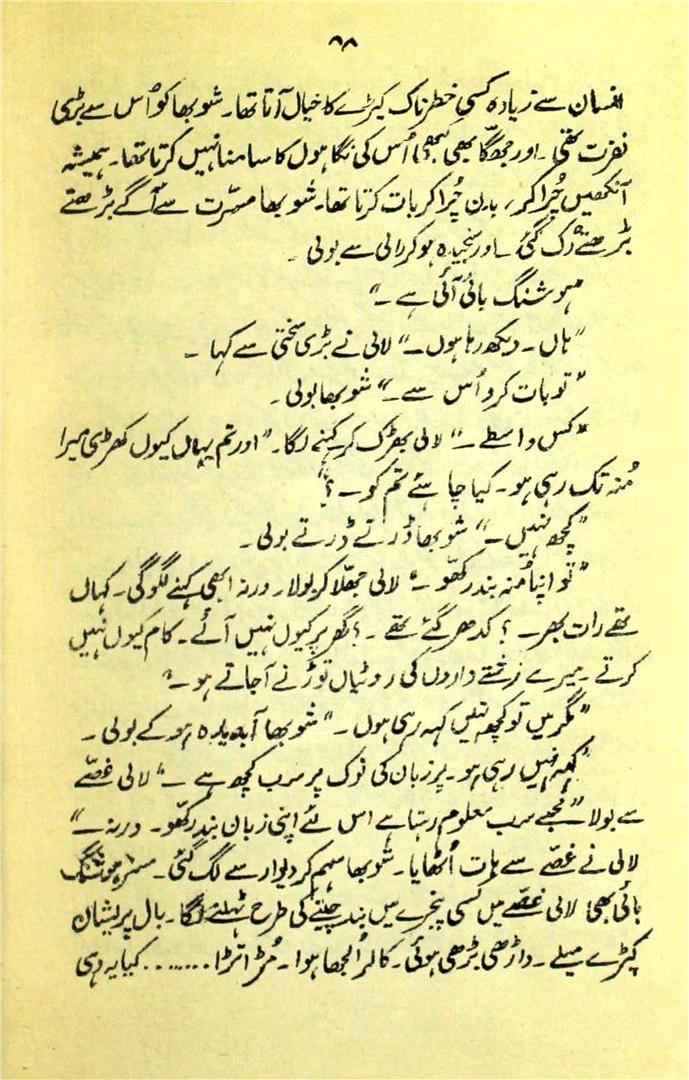 ۶۸
انسان سے زیادہ کسی خطرناک کیڑے کا خیال آتا تھا۔ شوبھا کو اُس سے بڑی
نفرت تھی۔ اور جھگا بھی کبھی اُس کی نگاہوں کا سامنا نہیں کرتا تھا۔ ہمیشہ
آنکھیں چُرا کر، بدن چُرا کر بات کرتا تھا۔ شوبھا مسرّت سے آگے بڑھتے
بڑھتے رُک گئی۔ اور سنجیدہ ہو کر لالی سے بولی۔
ہوشنگ بائی آئی ہے۔"
"ہاں۔ دیکھ رہا ہوں۔" لالی نے بڑی سختی سے کہا۔
"تو بات کرو اُس سے۔" شوبھا بولی۔
"کس واسطے۔" لالی بھڑک کر کہنے لگا۔ "اور تم یہاں کیوں کھڑی میرا
مُنہ تک رہی ہو۔ کیا چاہئے تم کو۔؟"
"کچھ نہیں۔" شوبھا ڈرتے ڈرتے بولی۔
"تو اپنا مُنہ بند رکھّو۔" لالی جھلّا کر بولا۔ ورنہ ابھی کہنے لگو گی۔ کہاں
تھے رات بھر۔؟ کدھر گئے تھے۔؟ گھر پر کیوں نہیں آئے۔ کام کیوں نہیں
کرتے۔ میرے رشتے داروں کی روٹیاں توڑنے آ جاتے ہو۔"
"مگر میں تو کچھ نہیں کہہ رہی ہوں۔" شوبھا آبدیدہ ہو کے بولی۔
"کہہ نہیں رہی ہو۔ پر زبان کی نوک پر سب کچھ ہے۔" لالی غصّے
سے بولا "مجھے سب معلوم رہتا ہے اس لئے اپنی زبان بند رکھّو۔ ورنہ۔"
لالی نے غصّے سے ہات اُٹھایا۔ شوبھا سہم کر دیوار سے لگ گئی۔ مسز ہوشنگ
بائی بھی! لالی غصّے میں کسی پنجرے میں بند چیتے کی طرح ٹہلنے لگا۔ بال پریشان
کپڑے میلے۔ داڑھی بڑھی ہوئی۔ کالر اُلجھا ہوا۔ مُڑا تڑا ........ کیا یہ وہی